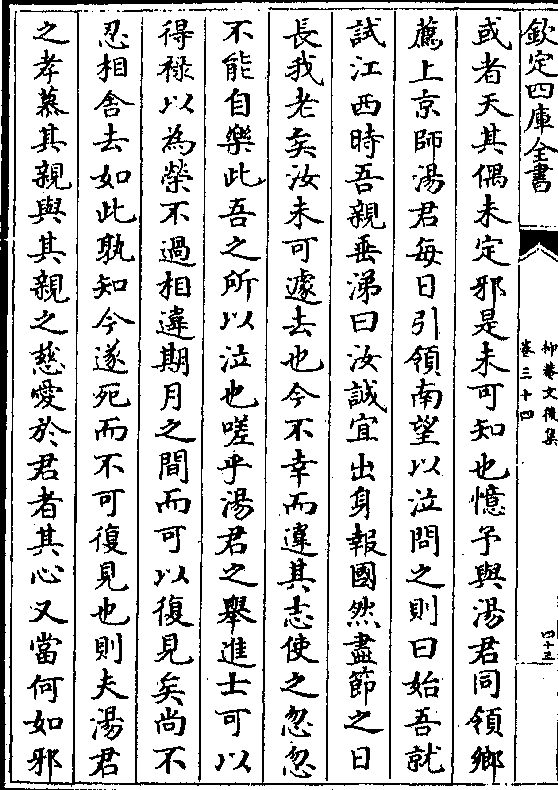 欽定四庫全書
抑菴文後集
卷三十四
四十三
或者天其偶未定邪是未可知也憶予與湯君同領鄉
薦上京師湯君每日引領南望以泣問之則曰始吾就
試江西時吾親垂涕曰汝誠宜出身報國然盡節之日
長我老矣汝未可遽去也今不幸而違其志使之忽忽
不能自樂此吾之所以泣也嗟乎湯君之舉進士可以
得祿以為榮不過相違期月之間而可以復見矣尚不
忍相舍去如此孰知今遂死而不可復見也則夫湯君
之孝慕其親與其親之慈愛於君者其心又當何如邪